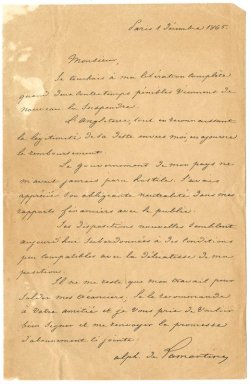 Paris 1 Décembre 1865.
Monsieur,
Je touchais à ma libération complète
quand deux contretemps pénibles viennent de
nouveau la suspendre.
L'Angleterre, tout en reconnaissant
la légitimité de la dette envers moi, en ajourne
le remboursement.
Le gouvernement de mon pays ne
m'avait jamais paru hostile. J'avais
apprécié son obligeante neutralité dans mes
rapports financiers avec le public.
Ses dispositions nouvelles semblent
aujourd'hui subordonnées à des conditions
peu compatibles avec la délicatesse de ma
position.
Il ne me reste que mon travail pour
solder mes créanciers. Je le recommande
à votre amitié et je vous prie de vouloir
bien signer et me renvoyer la promesse
d'abonnement ci jointe.
alph. de Lamartine